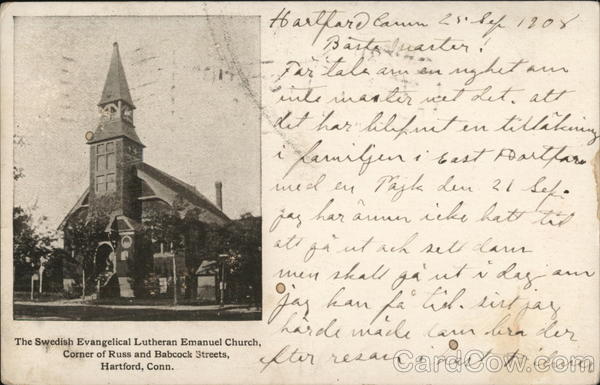 Hartford Conn 25 Sep 1908
Bästa
Får tala om en nyhet om
inte moster vet det. att
det har blifvit en tillökning
i familjen i East Hartford
med en Pojk den 21 Sep.
jag har ännu icke haft tid
att gå ut och sett dom
men skall gå ut i dag om
jag kan få tid. sist jag
hörde mådde dom bra der
efter resan i
The Swedish Evangelical Lutheran Emanuel Church,
Corner of Russ and Babcock Streets,
Hartford, Conn.
CardCow.com